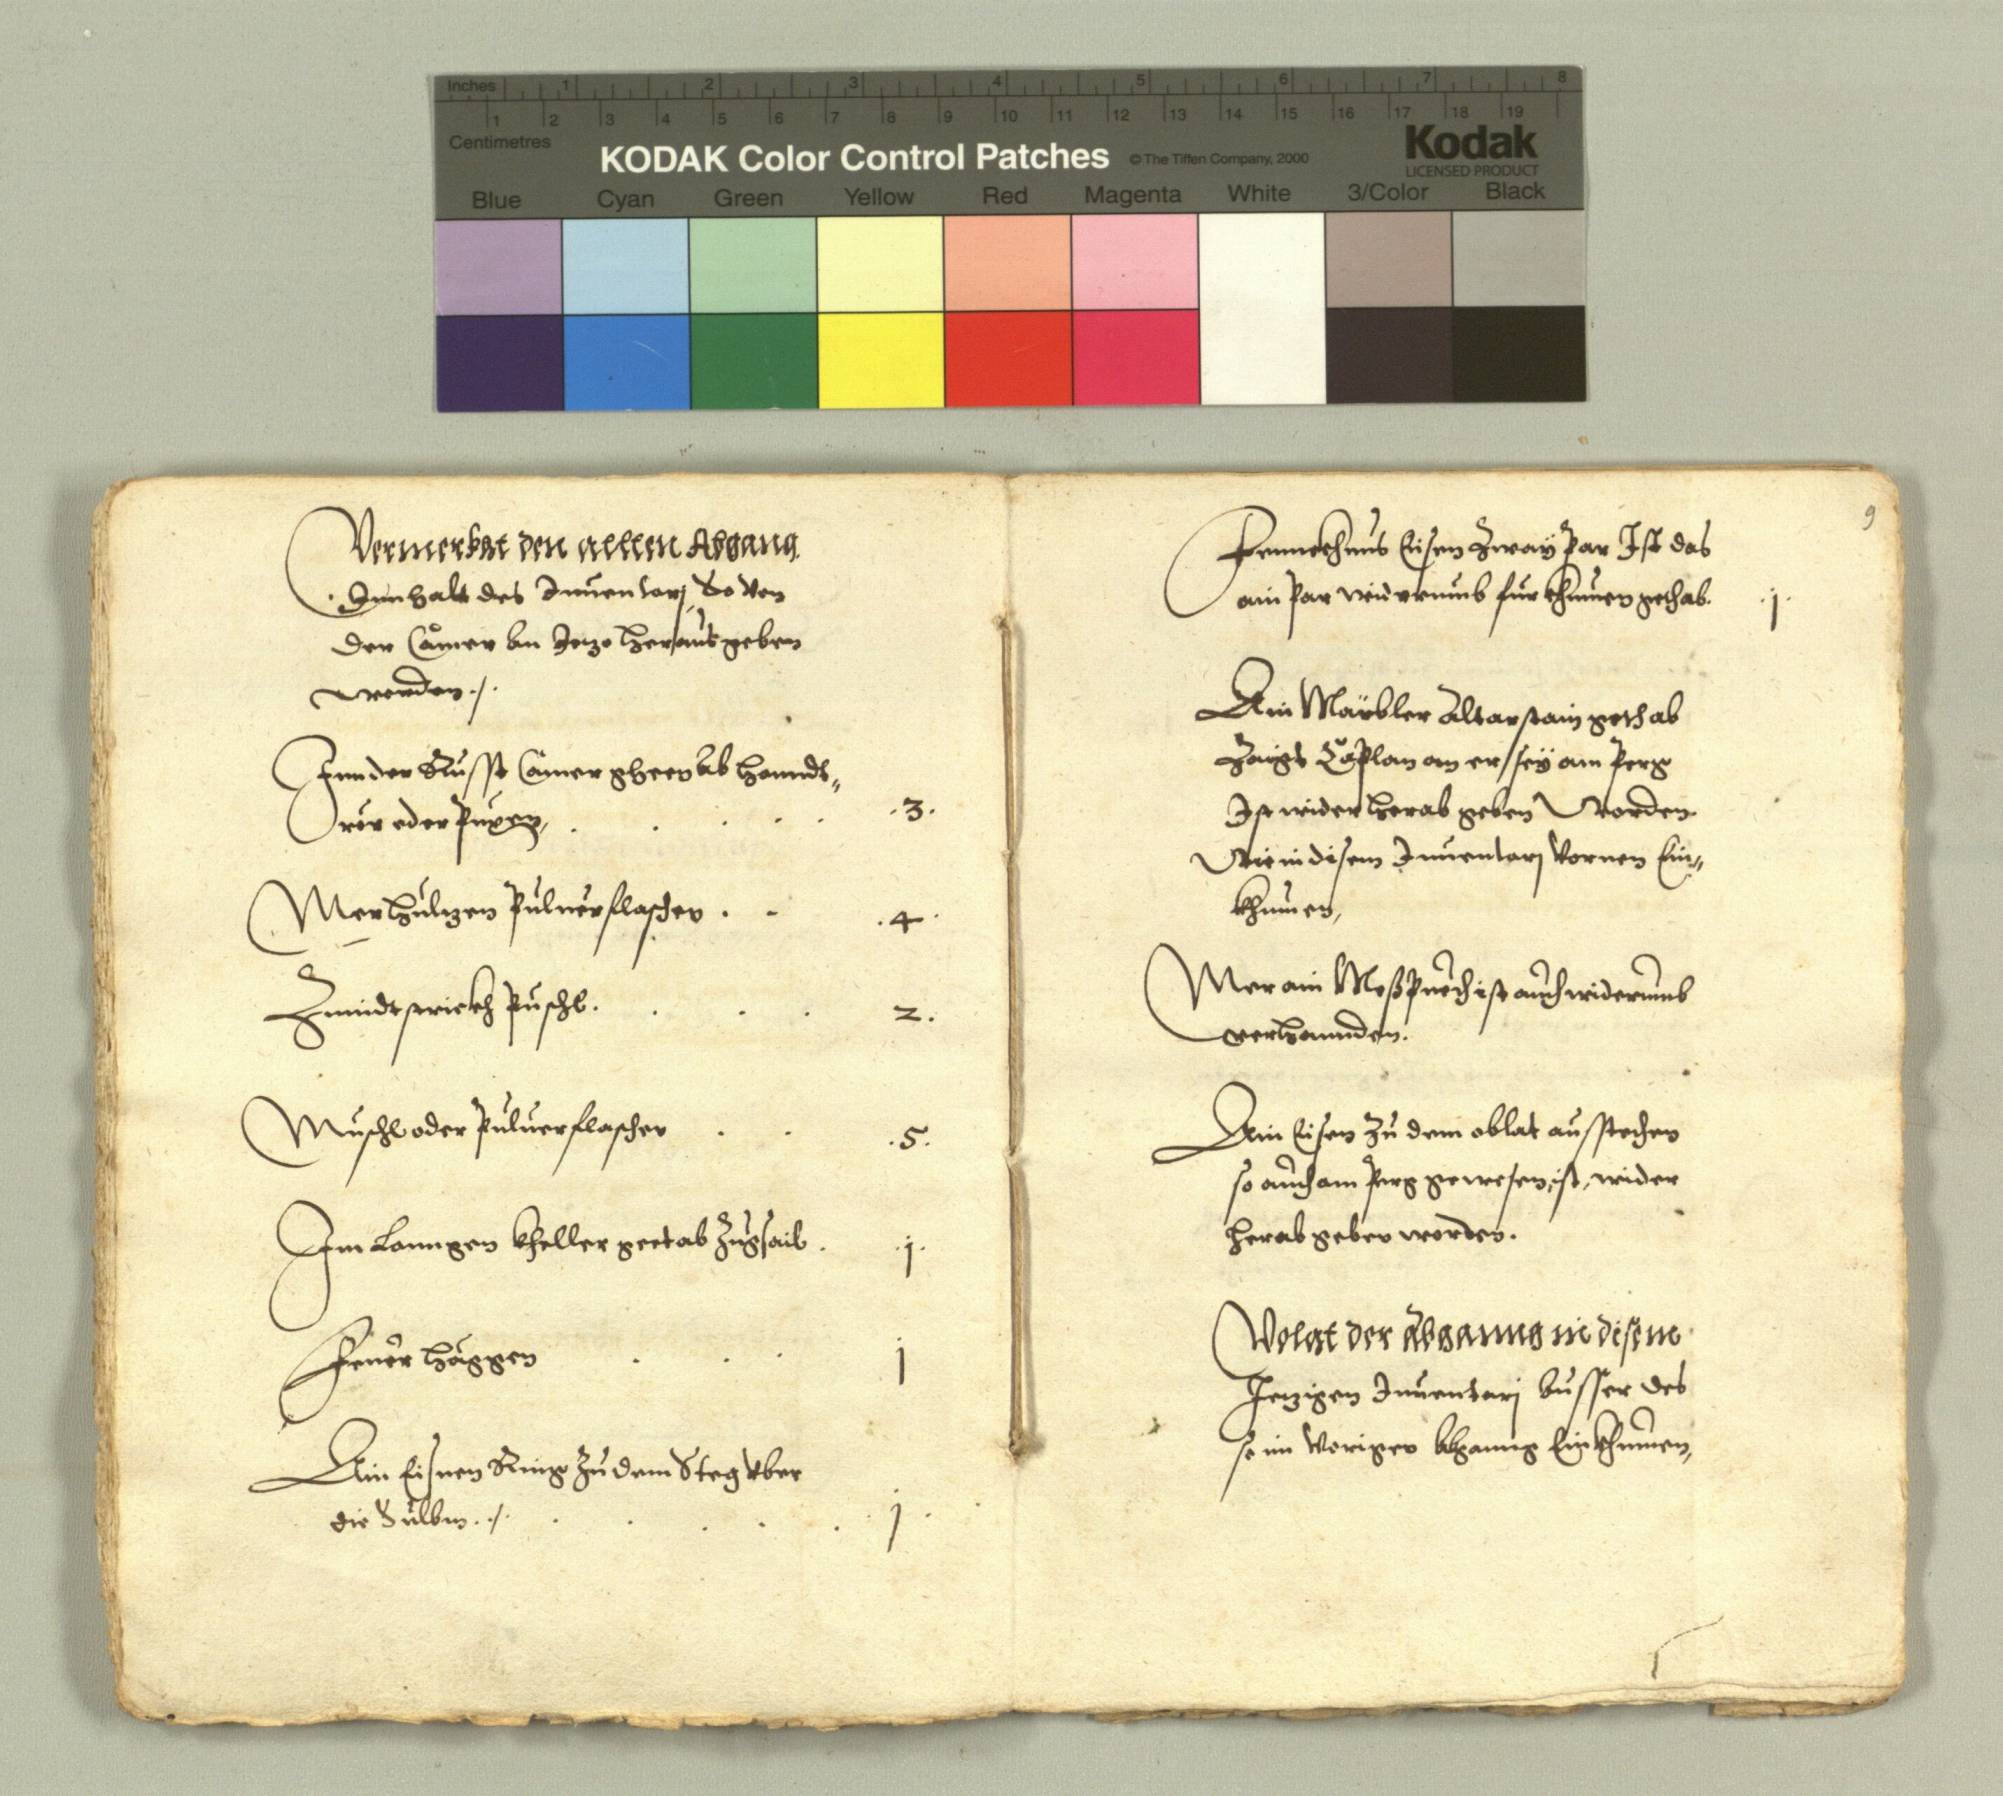 Inches 1 2 3 4 5 6 7 8
1 2 3 4 5 6 7 8 9 10 11 12 13 14 15 16 17 18 19
Centimetres
KODAK Color Control Patches © The Tiffen Company, 2000 Kodak
LICENSED PRODUCT
Blue Cyan Green Yellow Red Magenta White 3/Color Black
Vermerkht den alltten Abgang
Innhalt des Inuentarj, So von
der Camer bn Jezo heraus geben
worden ./.
Inn der Russt Camer gheen ab hanndt„
rör oder Puxen, . . . . . .3.
Mer hultzen Puluerflaschen . . .4.
Zundtstrickh Puschl . . . . 2.
Muschl oder Puluerflaschen . . .5.
Im Lanngen Kheller geet ab Zugsail . .j.
Feuer haggen . . . j
Ain Eisnen Ring zu dem Steg vber
die Sulbm ./. . . . . . j .
9
Fennckhnus Eisen Zway Par Ist das
ain Par widerumb fur khumen gehab. .j.
Ain Märbler Altarstain gehab
Caplan an er sey am Perg
Ist wider herab geben worden
Wie in disem Inuentarj vornen Ein„
khumen,
Mer ain Meßpuech ist auch widerumb
verhannden.
Ain Eisen zu dem oblat ausstechen
so auch am Perg gewesen, ist, wider
herab geben worden.
Volgt der Abganng in disem
Jezigen Inuentarj ausser des
so im Vorigen Abganng Einkhumen,